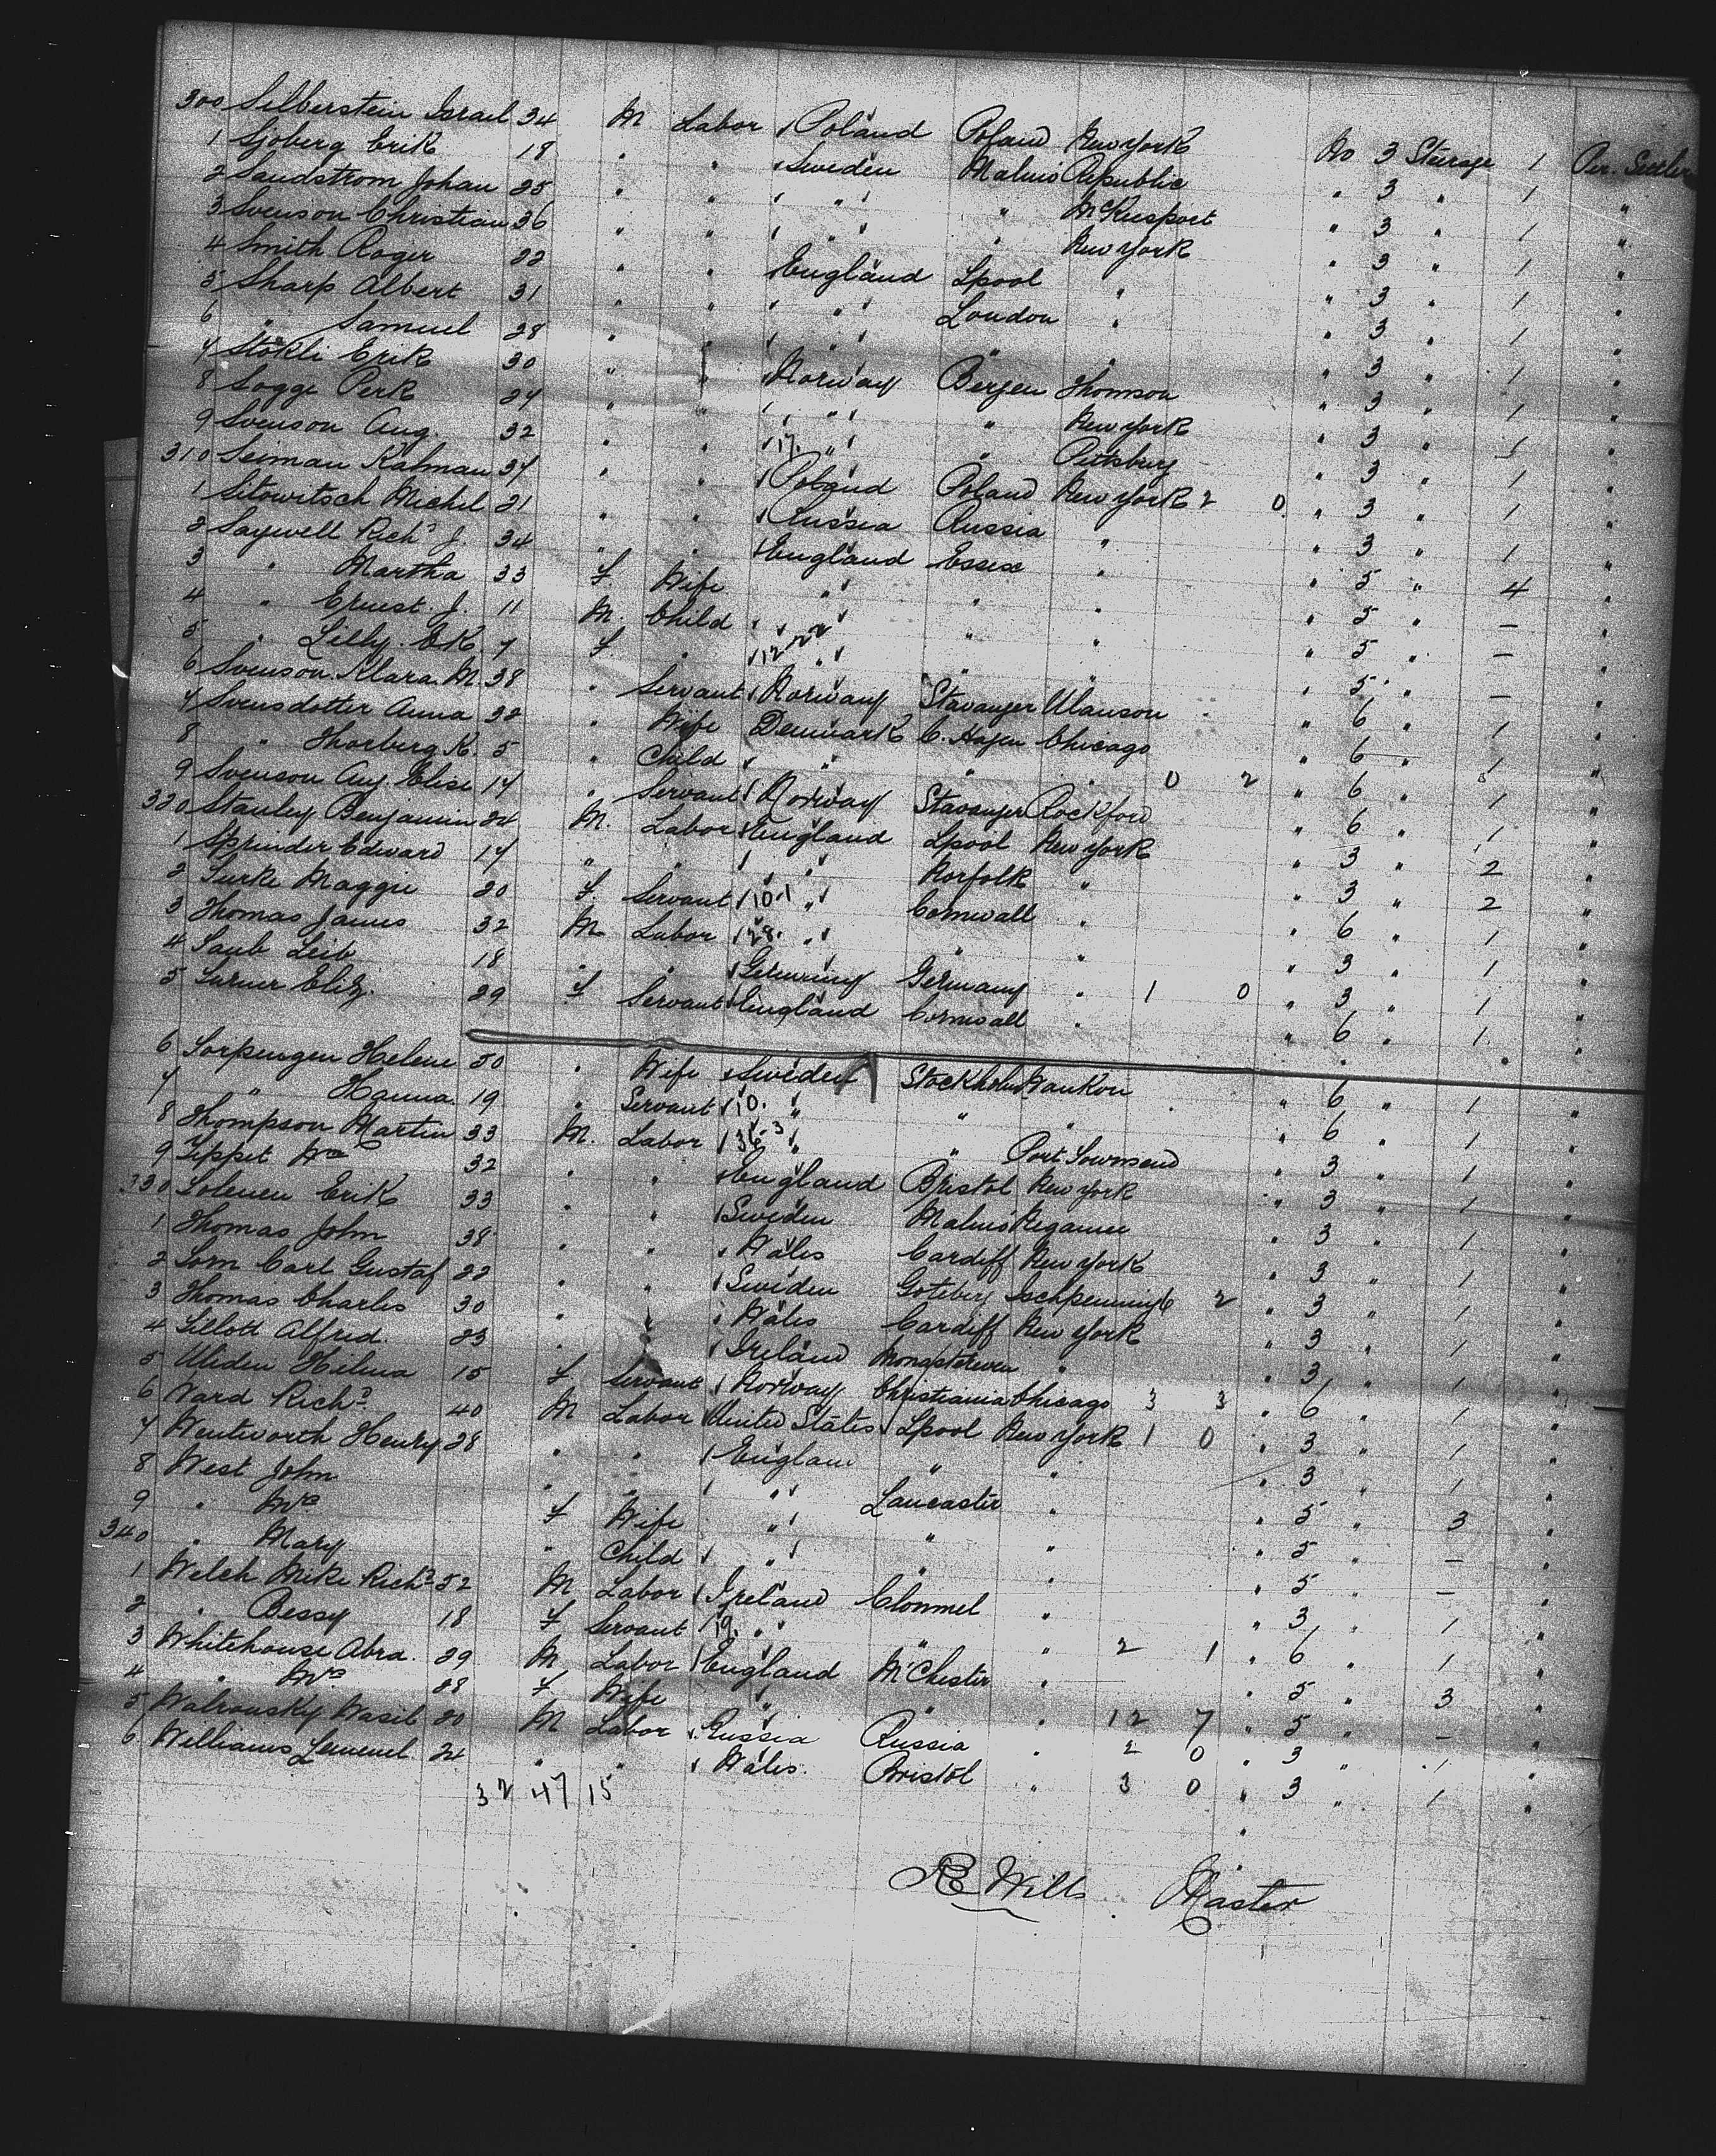 300 Silberstein Israel 34 M Labor Poland Poland New York No 3 Steerage 1 Per. Settler
1 Sjoberg Erik 18 " " Sweden Malmö Republic " 3 " 1 "
2 Sandstrom Johan 25 " " " " McKeesport " 3 " 1 "
3 Svenson Christian 36 " " " " New York " 3 " 1 "
4 Smith Roger 22 " " England Lpool " " 3 " 1 "
5 Sharp Albert 31 " " " London " " 3 " 1 "
6 " Samuel 28 " " " " " " 3 " 1 "
7 Stökli Erik 30 " " Norway Bergen Thomson " 3 " 1 "
8 Sogge Perk 24 " " " " New York " 3 " 1 "
9 Svenson Aug. 32 " " 17. " " Pittsburg " 3 " 1 "
310 Seiman Kalman 37 " " Poland Poland New York 2 0 " 3 " 1 "
1 Sitowitsch Michel 21 " " Russia Russia " " 3 " 1 "
2 Saywell Richd J. 34 " " England Essex " " 5 " 4 "
3 " Martha 33 F Wife " " " " 5 " — "
4 " Ernest J. 11 M. Child " " " " 5 " — "
5 " Lilly. E K. 7 F " 12 " " " " 5 " — "
6 Svenson Klara. M. 38 " Servant Norway Stavanger " 6 " 1 "
7 Svensdotter Anna 32 " Wife Denmark C. Hagen Chicago " 6 " 1 "
8 " Thorberg K. 5 " Child " " " 0 2 " 6 " 1 "
9 Svenson Aug. Elise 17 " Servant Norway Stavanger Rockford " 6 " 1 "
320 Stanley Benjamin 24 M. Labor England Lpool New York " 3 " 2 "
1 Sprinder Edward 17 " " " Norfolk " " 3 " 2 "
2 Turke Maggie 20 F. Servant 10.1 " Cornwall " " 6 " 1 "
3 Thomas James 32 M Labor 28. " " " " 3 " 1 "
4 Taub Leib 18 " " Germany Germany " 1 0 " 3 " 1 "
5 Turner Eliz. 29 F Servant England Cornwall " " 6 " 1 "
6 Torpengen Helene 50 " Wife Sweden Stockholm Waukon " 6 " 1 "
7 " Hanna. 19 " Servant 10. " " " 6 " 1 "
8 Thompson Martin 33 M. Labor 36 3 " " Port Townsend " 3 " 1 "
9 Tippet Wm 32 " " England Bristol New York " 3 " 1 "
330 Tolenen Erik 33 " " Sweden Malmö Negaunee " 3 " 1 "
1 Thomas John 38 " " Wales Cardiff New York " 3 " 1 "
2 Tom Carl Gustaf 22 " " Sweden Goteberg 2 " 3 " 1 "
3 Thomas Charles 30 " " Wales Cardiff New York " 3 " 1 "
4 Tillott Alfred. 23 " " Ireland " " 3 " 1 "
5 Uliden Helena 15 F Servant Norway Christiania Chicago 3 3 " 6 " 1 "
6 Vard Richd. 40 M Labor United States Lpool New York 1 0 " 3 " 1 "
7 Wentworth Henry 28 " " England " " " 3 " 1 "
8 West John " " " Lancaster " " 5 " 3 "
9 " Mrs F Wife " " " " 5 " — "
340 " Mary " Child " " " " 5 " — "
1 Welch Mike Richd 52 M Labor Ireland Clonmel " " 3 " 1 "
2 " Bessy 18 F Servant 19. " " " 2 1 " 6 " 1 "
3 Whitehouse Abra. 29 M Labor England M'Chester " " 5 " 3 "
4 " Mrs 28 F Wife " " " 12 7 " 5 " — "
5 Walrousky Wasil 20 M Labor Russia Russia " 2 0 " 3 " 1 "
6 Williams Lemuel 24 " " Wales. Bristol " 3 0 " 3 " 1 "
32 47 15
RE Wills. Master